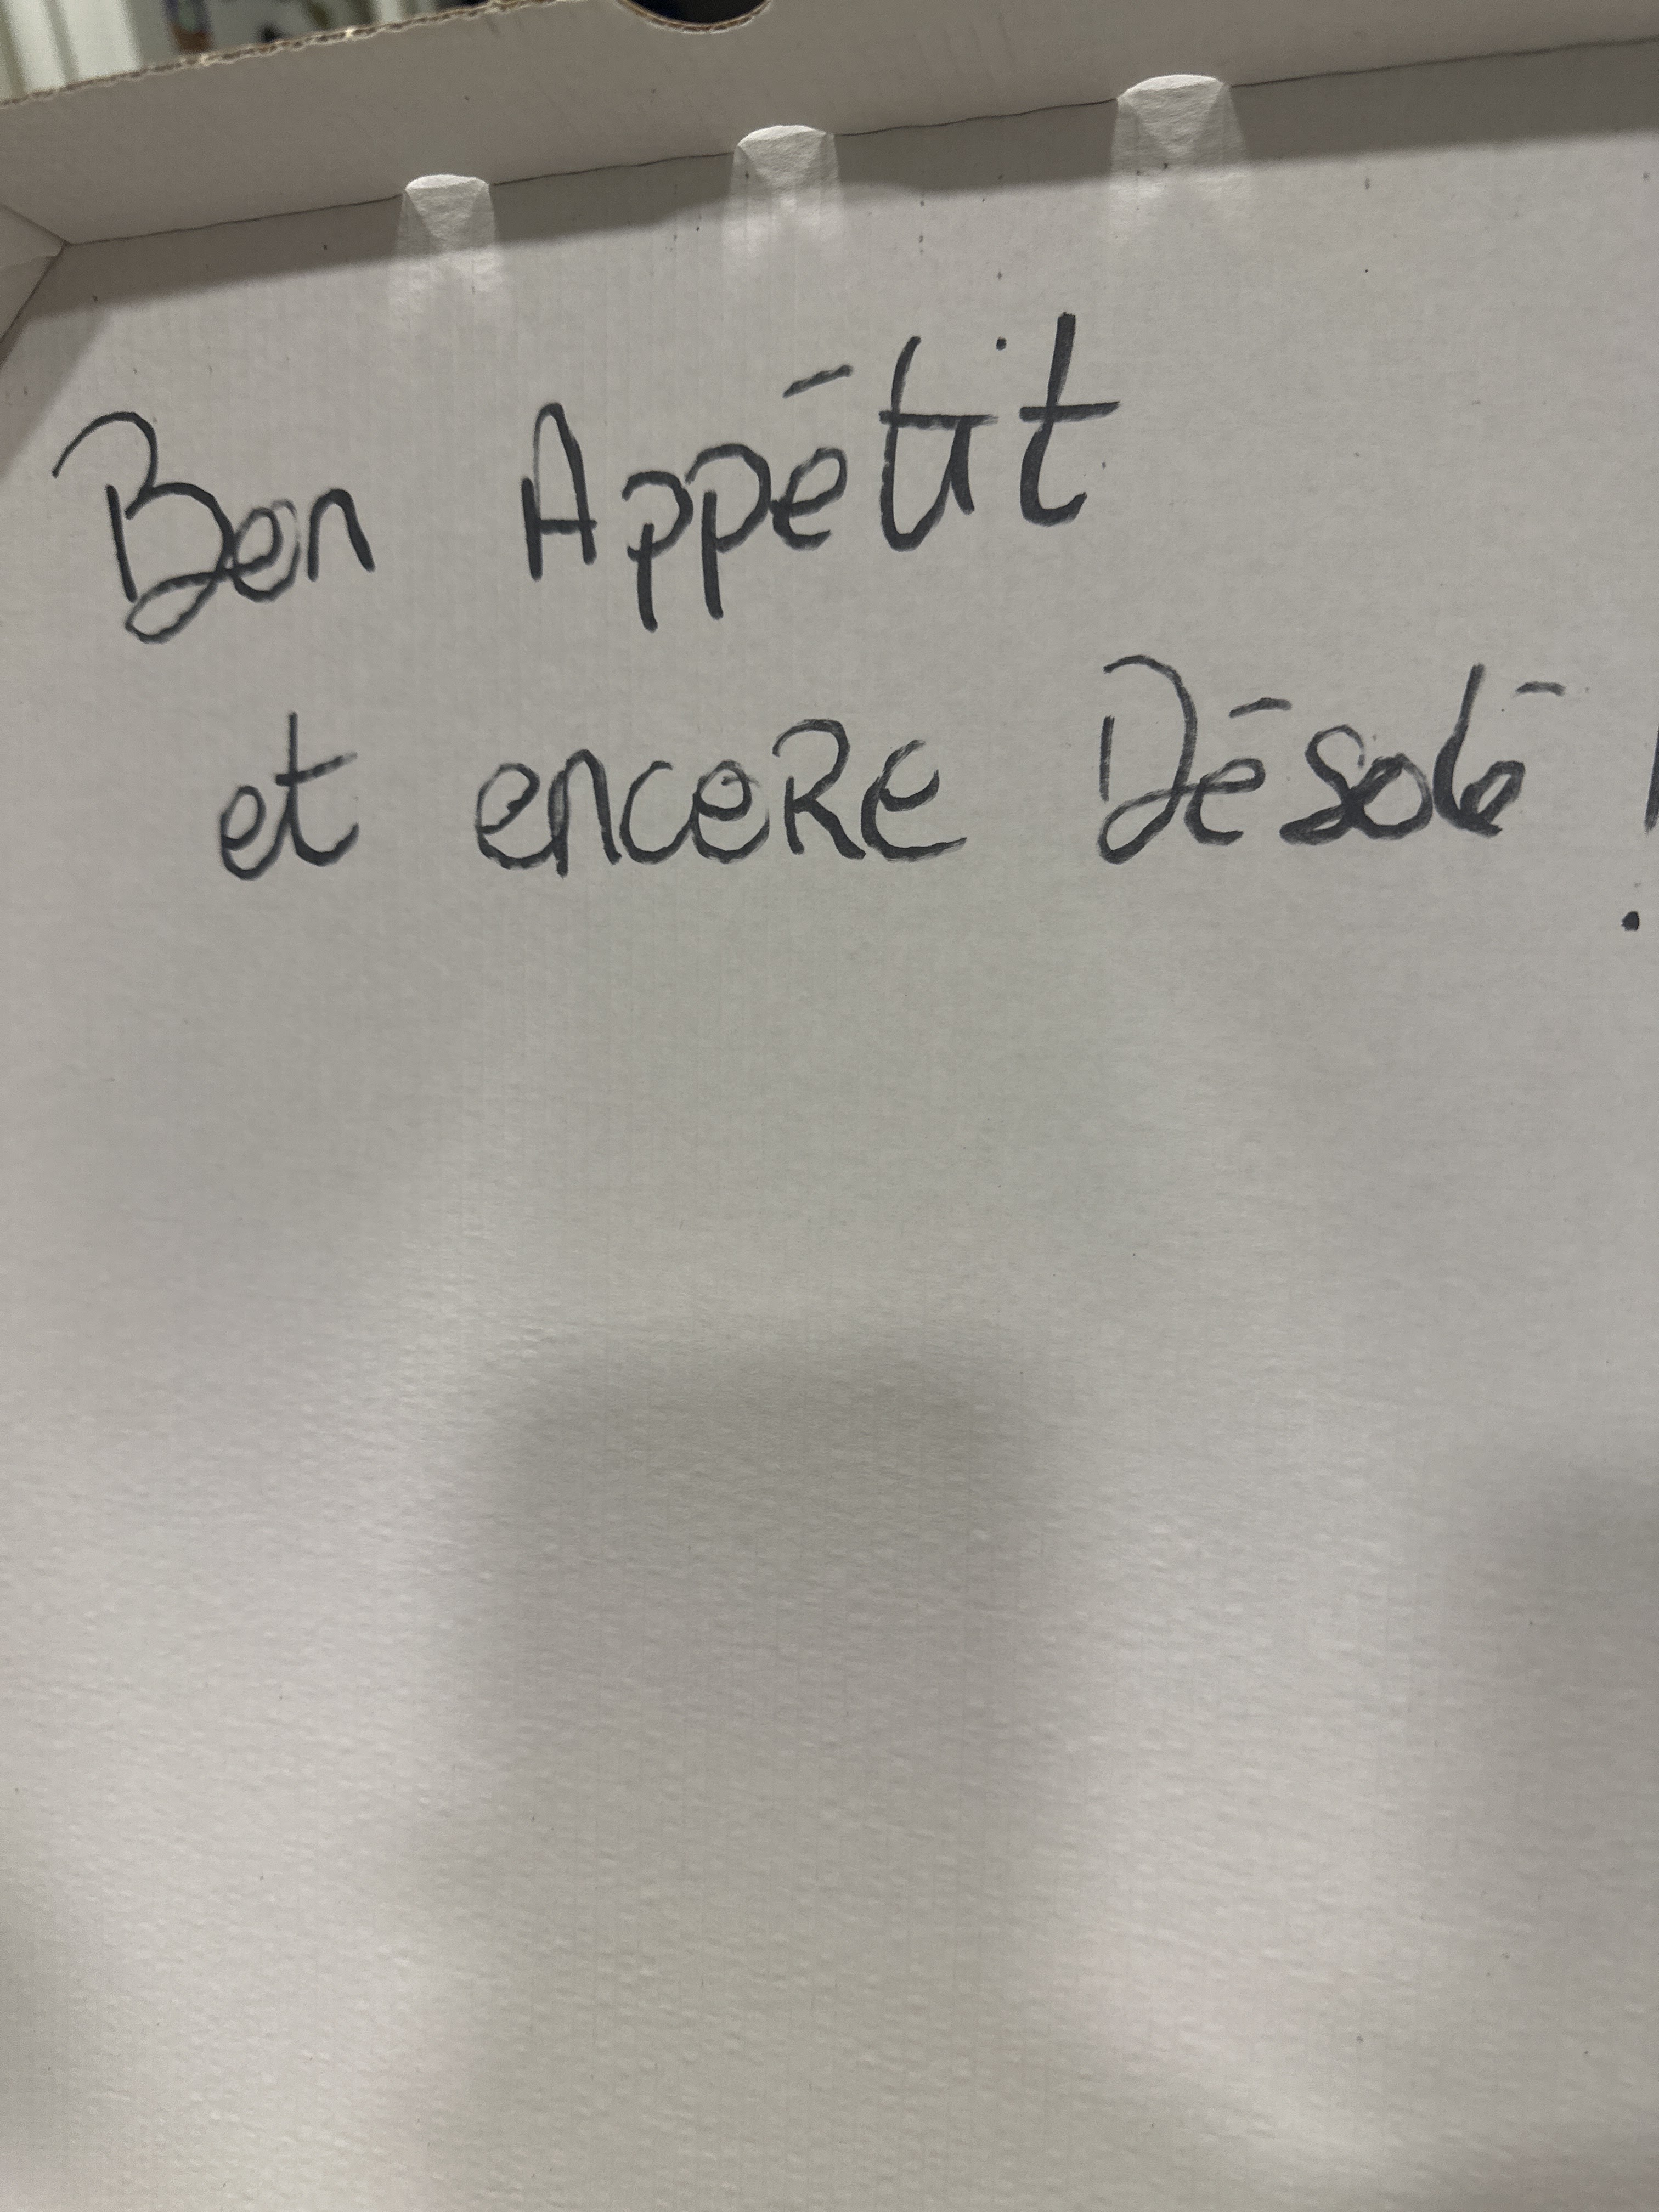 Bon Appétit
et encoRE Désolé !